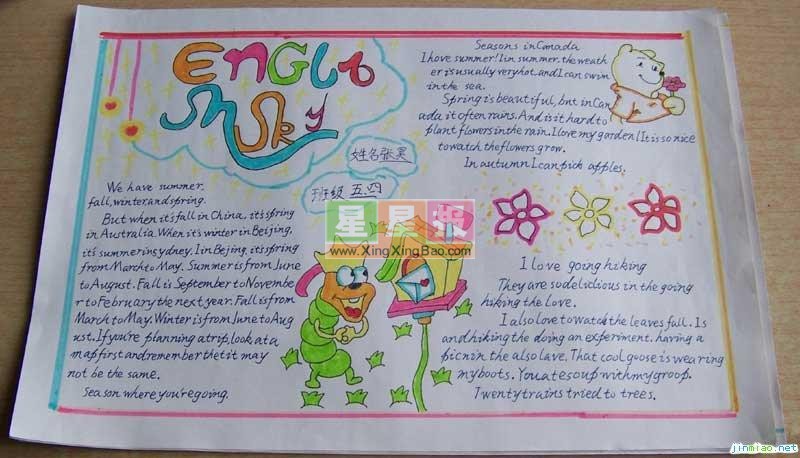 Engli
sh Sky
姓名张昊
班级 五.四
We have summer.
fall, winter and spring.
But when it's fall in China, it's spring
in Australia. When it's winter in Beijing,
it's summer in sydney. In Bejing, it's spring
from March to May. Summer is from June
to August. Fall is September to Novembe
r to February the next year. Fall is from
March to May. Winter is from June to Aug
ust. If you're planning a trip, look at a
map first and remember thet it may
not be the same.
Season where you're going.
Seasons in Canada
I hove summer! Iin summer. the weath
er is usually very hot. and I can swim
in the sea.
Spring is beautiful, but in Can
ada it often rains. And is it hard to
plant flowers in the rain. I love my garden! It is so nice
to watch the flowers grow.
In autumn I can pick apples.
星星报
www.XingXingBao.com
I love going hiking
They are so delicious in the going
hiking the love.
I also love to watch the leaves fall. Is
and hiking the doing an experiment. having a
picnin the also lave. That cool goose is wearing
my boots. You ate soup with my groop.
Twenty trains tried to trees.
jinmiao.net